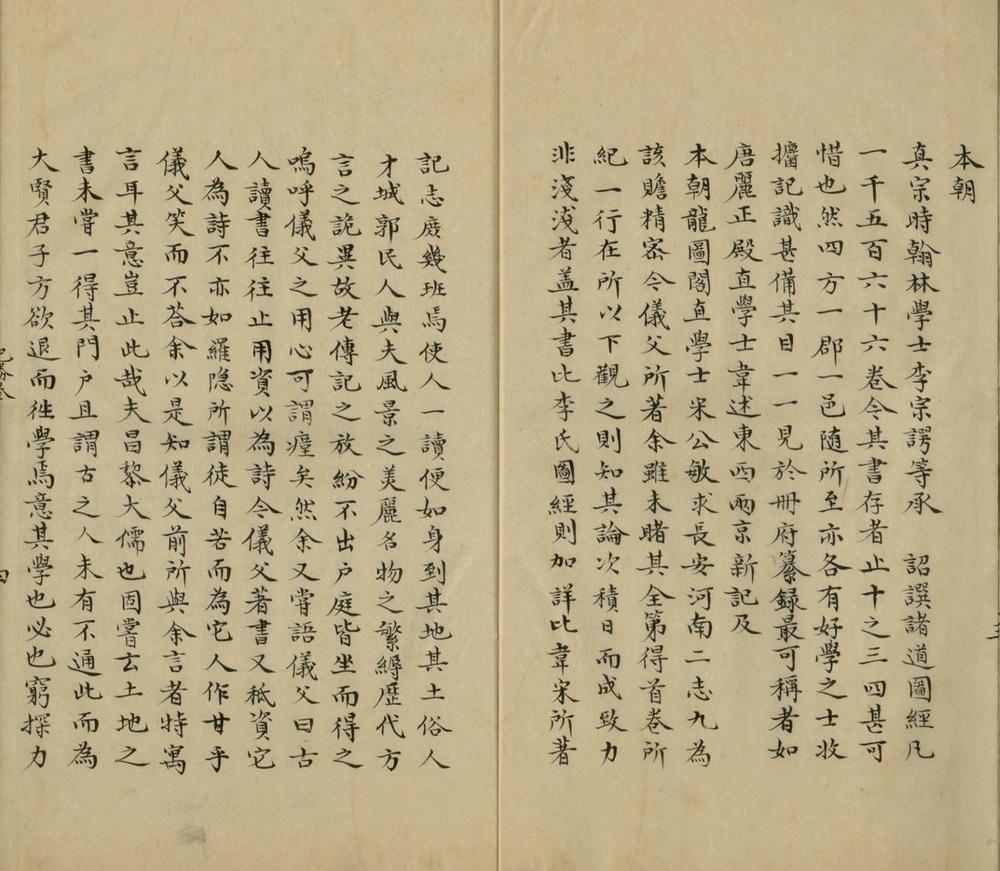 本朝
真宗時翰林學士李宗諤等承　詔譔諸道圖經凡
一千五百六十六卷今其書存者止十之三四甚可
惜也然四方一郡一邑随所至亦各有好學之士收
攟記識甚備其目一一見於冊府纂録最可稱者如
唐麗正殿直學士韋述東西兩京新記及
本朝龍圖閣直學士宋公敏求長安河南二志尤為
該贍精宻令儀父所著余雖未睹其全第得首卷所
紀一行在所以下觀之則知其論次積日而成致力
非淺淺者盖其書比李氏圖經則加詳比韋宋所著
記志庻幾班焉使人一讀便如身到其地其土俗人
才城郭民人與夫風景之美麗名物之繁縟歷代方
言之詭異故老傳記之放紛不出户庭皆坐而得之
嗚呼儀父之用心可謂瘽矣然余又甞語儀父曰古
人讀書往往止用資以為詩今儀父著書又秪資它
人為詩不亦如羅隐所謂徒自苦而為它人作甘乎
儀父笑而不荅余以是知儀父前所與余言者特寓
言耳其意豈止此哉夫昌黎大儒也固嘗云土地之
書未嘗一得其門户且謂古之人未有不通此而為
大賢君子方欲退而徃學焉意其學也必也窮探力